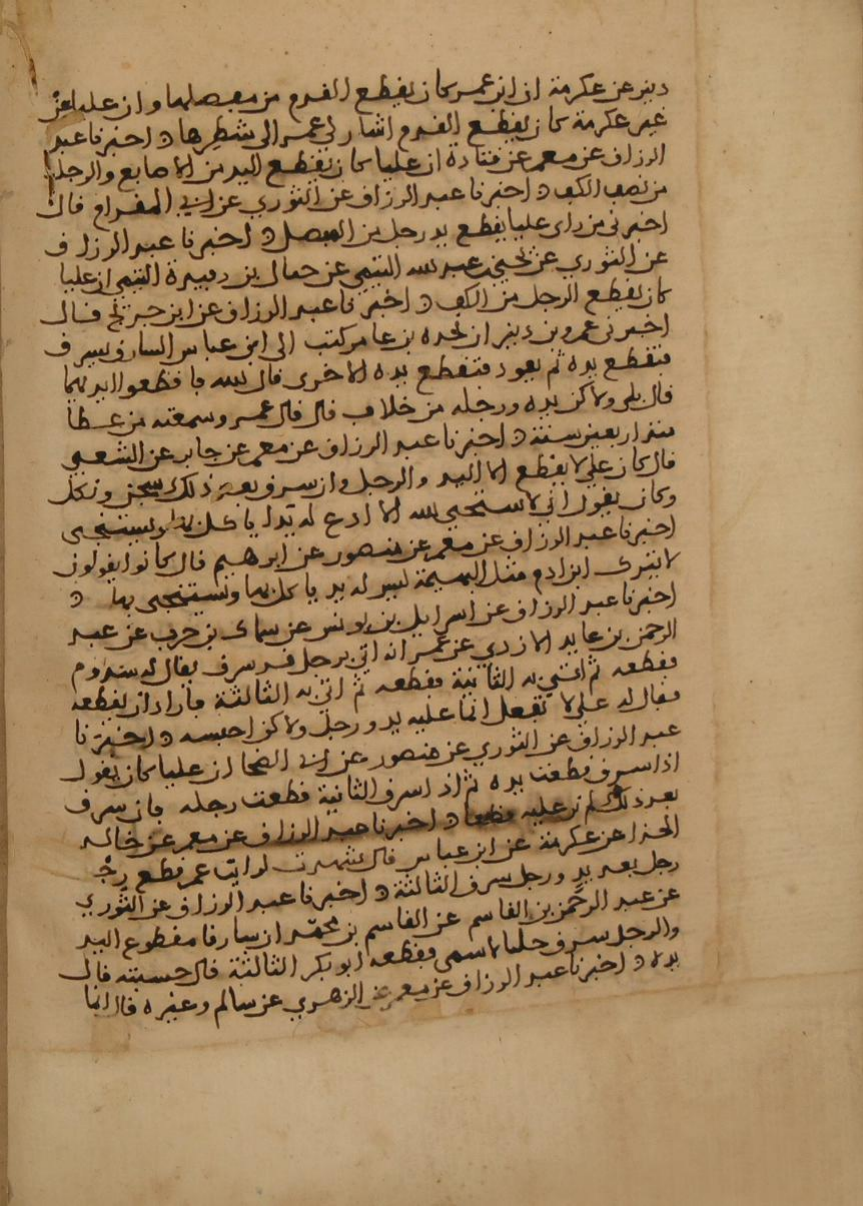 دينر عن عكرمة ان ابن عمر كان يقطع القدم من مفصلها وان عليا عن
غير عكرمة كان يقطع القدم اشار لي عمر الى شطرها ٥ اخبرنا عبد
الرزاق عن معمر عن قتادة ان عليا كان يقطع اليد من الاصابع والرجل
من نصف الكف ٥ اخبرنا عبد الرزاق عن الثوري عن ابي المقدام قال
اخبرني من راى عليا يقطع يد رجل من المفصل ٥ اخبرنا عبد الرزاق
عن الثوري عن يحيى عبد الله التيمي عن حمال بن رفيدة التيمي ان عليا
كان يقطع الرجل من الكف ٥ اخبرنا عبد الرزاق عن ابن جريج قال
اخبرني عمرو بن دينر ان نجده بن عامر كتب الى ابن عباس السارق يسرق
فتقطع يده ثم يعود فتقطع يده الاخرى قال الله فاقطعوا ايديهما
قال بلى ولاكن يده ورجله من خلاف قال قال عمرو سمعته من عطا
منذ اربعين سنة ٥ اخبرنا عبد الرزاق عن معمر عن جابر عن الشعبي
قال كان علي لا يقطع الا اليد والرجل وان سرق بعد ذلك سجن ونكل
وكان يقول اني لاستحيي الله الا ادع له يدا ياكل بها ويستنجى
اخبرنا عبد الرزاق عن معمر عن منصور عن ابرهيم قال كانوا يقولون
لا يترك ابن ادم مثل البهيمة ليس له يد ياكل بها ويستنجى بها ٥
اخبرنا عبد الرزاق عن اسرايل بن يونس عن سماك بن حرب عن عبد
الرحمن بن عايد الازدي عن عمر انه اتي برجل قد سرق يقال له سدوم
فقطعه ثم اتي به الثانية فقطعه ثم اتي به الثالثة فاراد ان يقطعه
فقال له علي لا تفعل انما عليه يد ورجل ولاكن احبسه ٥ اخبرنا
عبد الرزاق عن الثوري عن منصور عن ابي الضحا ان عليا كان يقول
اذا سرق قطعت يده ثم اذا سرق الثانية قطعت رجله فان سرق
بعد ذلك لم نر عليه قطعا ٥ اخبرنا عبد الرزاق عن معمر عن خالد
الحذا عن عكرمة عن ابن عباس قال شهدت لرايت عمر قطع رجل
رجل بعد يد ورجل سرق الثالثة ٥ اخبرنا عبد الرزاق عن الثوري
عن عبد الرحمن بن القاسم عن القاسم بن محمد ان سارقا مقطوع اليد
والرجل سرق حليا لاسمى فقطعه ابو بكر الثالثة قال حسبته قال
يده ٥ اخبرنا عبد الرزاق عن معمر عن الزهري عن سالم وغيره قال انما